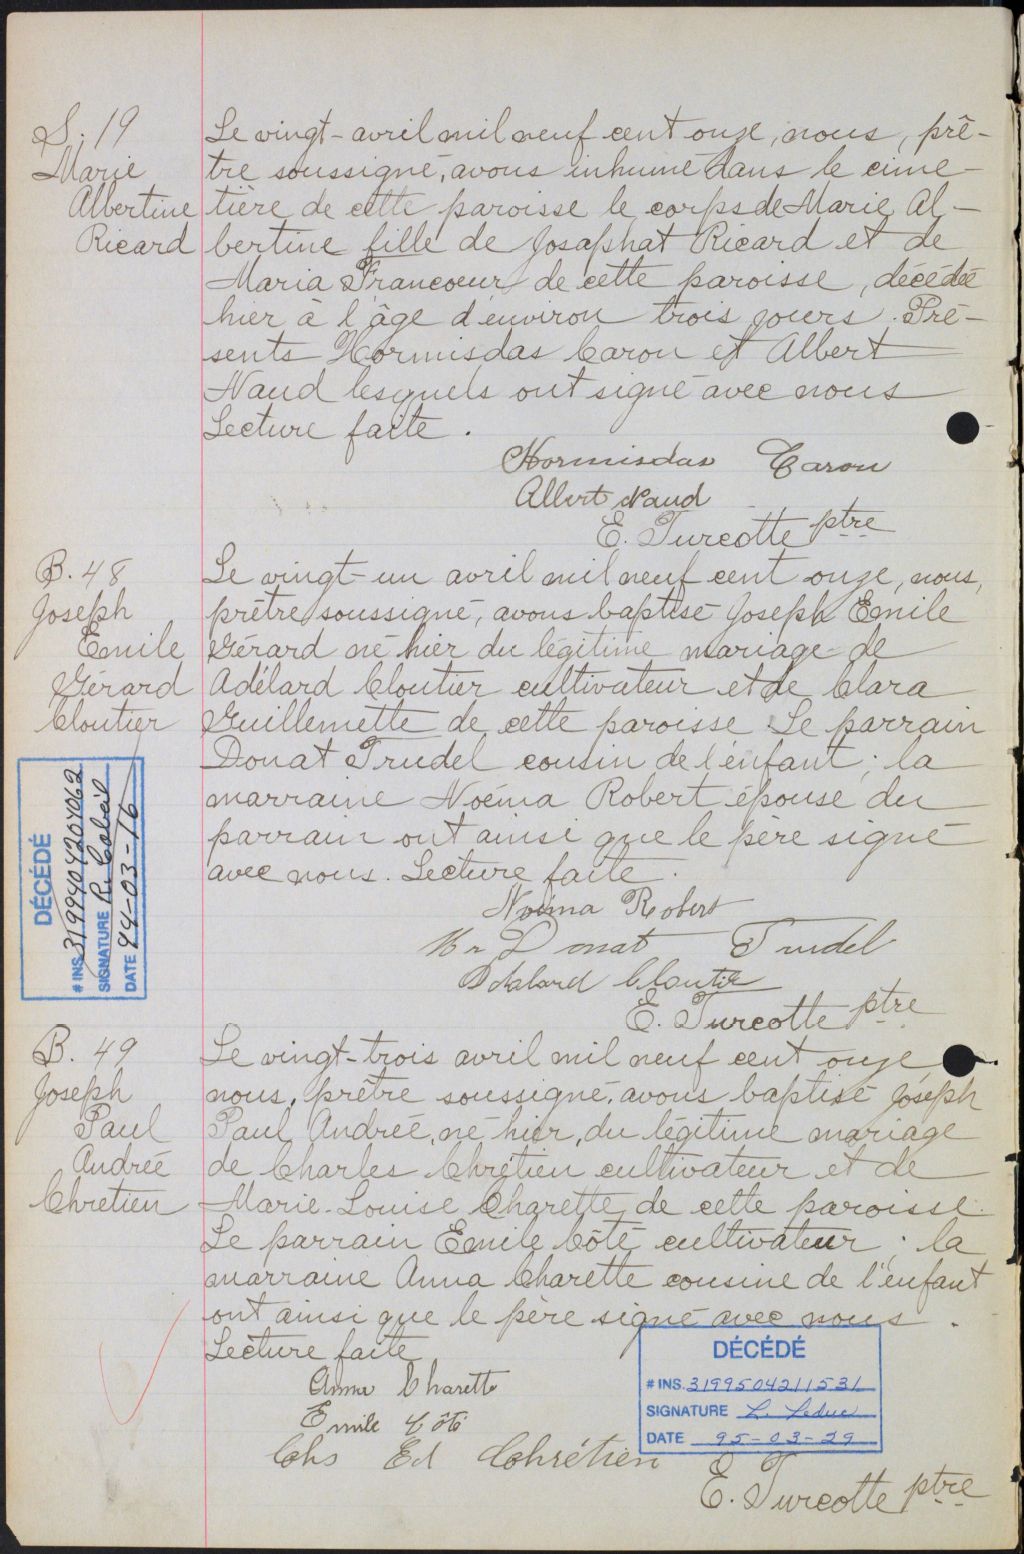 S. 19
Marie
Albertine
Ricard
Le vingt-avril mil neuf cent onze, nous, prê-
tre soussigné, avons inhumé dans le cime-
tière de cette paroisse le corps de Marie Al-
bertine fille de Josaphat Ricard et de
Maria Francoeur de cette paroisse, décédée
hier à l'âge d'environ trois jours. Pré-
sents Hormisdas Caron et Albert
Naud lesquels ont signé avec nous
Lecture faite.
Hormisdas Caron
Albert Naud
E. Turcotte ptre
B. 48
Joseph
Emile
Gérard
Cloutier
Le vingt-un avril mil neuf cent onze, nous,
prêtre soussigné, avons baptisé Joseph Emile
Gérard né hier du légitime mariage de
Adélard Cloutier cultivateur et de Clara
Guillemette de cette paroisse Le parrain
Donat Trudel cousin de l'enfant; la
marraine Noéma Robert épouse du
parrain ont ainsi que le père signé
avec nous. Lecture faite.
Noéma Robert
Mr Donat Trudel
Adélard Cloutier
E. Turcotte ptre
DÉCÉDÉ
# INS. 3199404204062
SIGNATURE R.
DATE 94-03-16
B. 49
Joseph
Paul
Andreé
Chretien
Le vingt-trois avril mil neuf cent onze,
nous, prêtre soussigné, avons baptisé Joseph
Paul Andreé, né hier, du légitime mariage
de Charles Chrétien cultivateur et de
Marie-Louise Charette de cette paroisse.
Le parrain Emile Côté cultivateur; la
marraine Anna Charette cousine de l'enfant
ont ainsi que le père signé avec nous.
Lecture faite
Anna Charette
Emile Côté
Chs Ed Chrétien
E. Turcotte ptre
DÉCÉDÉ
# INS. 3199504211531
SIGNATURE L. Leduc
DATE 95-03-29